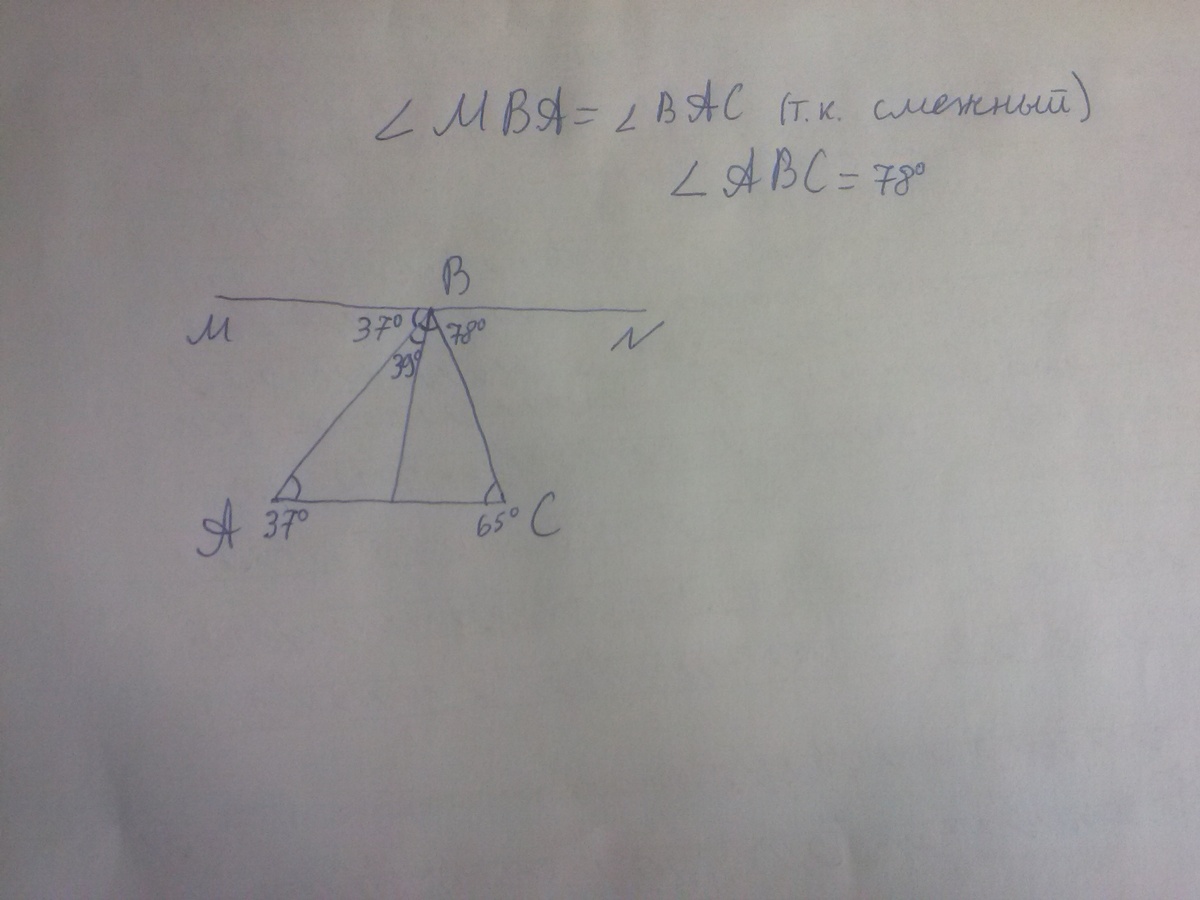 ∠ MBA = ∠ BAC (т.к. смежный)
∠ ABC = 78°
B
M 37° 78° N
39°
A 37° 65° C